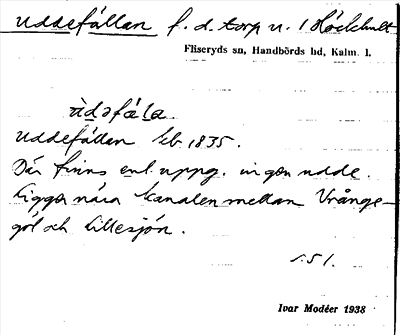 Uddefällan f. d. torp u. 1 Höckhult
Fliseryds sn, Handbörds hd, Kalm. l.
ùdəfǽla
Uddefällan kb. 1835.
Där finns enl. uppg. ingen udde.
Ligger nära kanalen mellan Vrånge-
göl och Lillesjön.
s. 51.
Ivar Modéer 1938